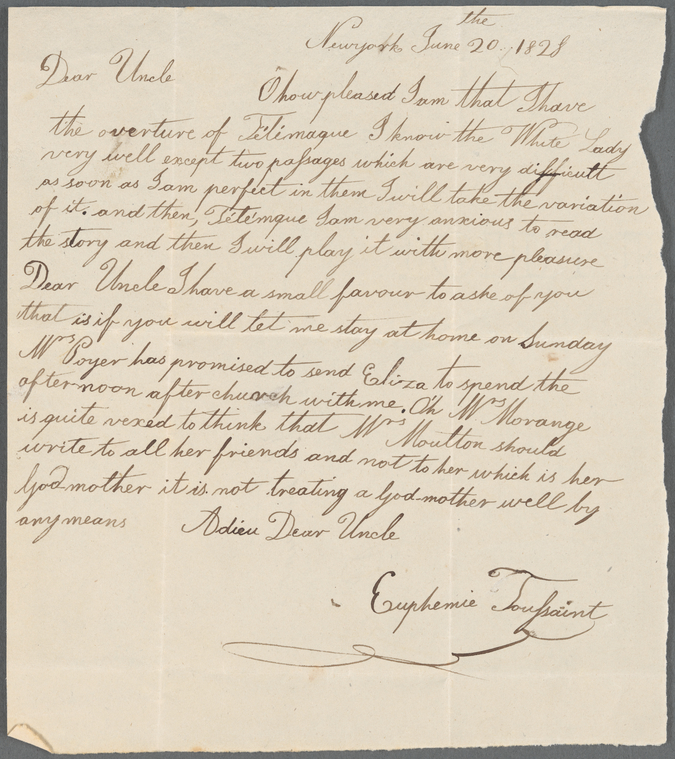 Newyork June 20 the 1828
Dear Uncle
O how pleased I am that I have
the overture of Télémaque I know the White Lady
very well except two passages which are very difficult
as soon as I am perfect in them I will take the variation
of it. and then, Télémque I am very anxious to read
the story and then I will play it with more pleasure
Dear Uncle I have a small favour to aske of you
that is if you will let me stay at home on Sunday
Mrs Poyer has promised to send Eliza to spend the
afternoon after church with me. Oh Mrs Morange
is quite vexed to think that Mrs Moulton should
write to all her friends and not to her which is her
God mother it is not treating a God-mother well by
any means Adieu Dear Uncle
Euphemie Toussaint